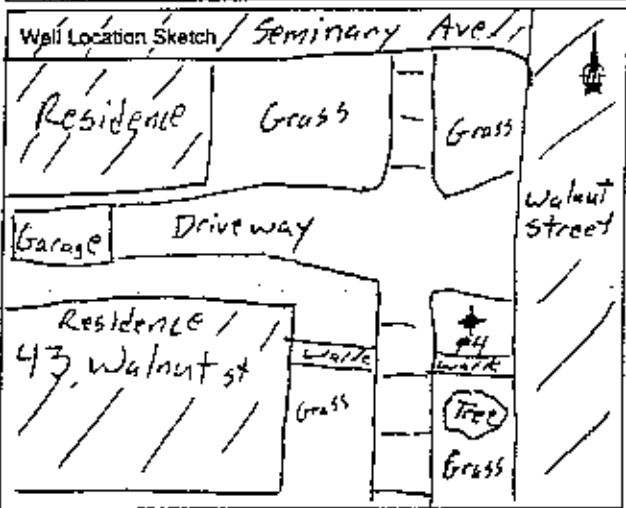 Well Location Sketch
Seminary Ave
Residence
Grass
Grass
Walnut
Street
Garage
Driveway
Residence
43 Walnut st
Walk
#4
Walk
Grass
Tree
Grass